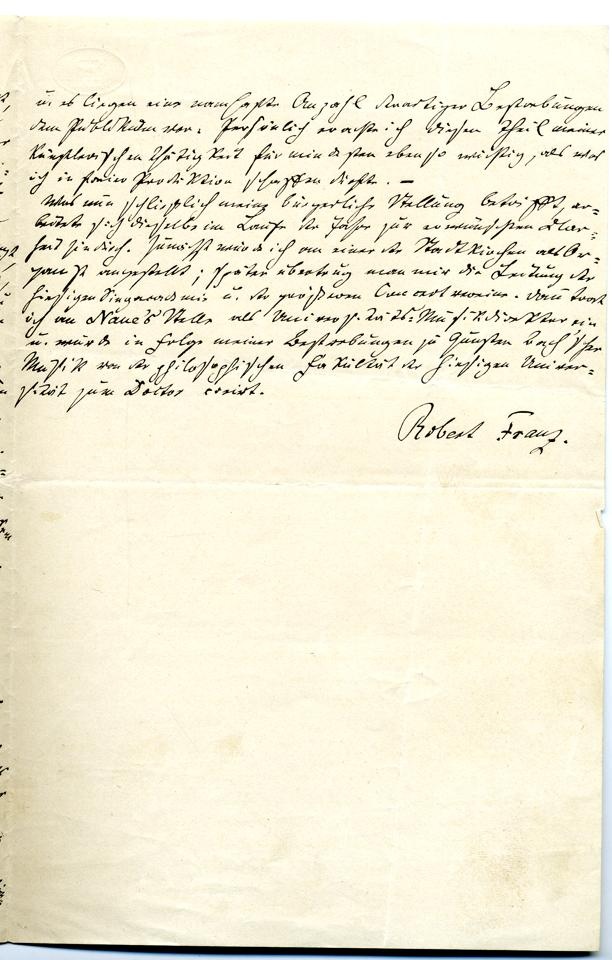 u. es liegen eine namhafte Anzahl derartiger Bestrebungen
dem Publikum vor. Persönlich erachte ich diesen Theil meiner
künstlerischen Thätigkeit für mindesten ebenso wichtig, als was
ich in freier Produktion schaffen dürfte. —
Was nun schließlich meine bürgerliche Stellung betrifft, ar-
beitete sich dieselbe im Laufe der Jahre zur erwünschten Klar-
heit hindurch. Zunächst wurde ich an einer der Stadtkirchen als Or-
ganist angestellt; später übertrug man mir die Leitung der
hiesigen Singacademie u. der größeren Concertvereine. Dann trat
ich an Naue's Stelle als Universitäts-Musikdirektor ein
u. wurde in Folge meiner Bestrebungen zu Gunsten Bach'scher
Musik von der philosophischen Fakultät der hiesigen Univer-
sität zum Doctor creirt.
Robert Franz.